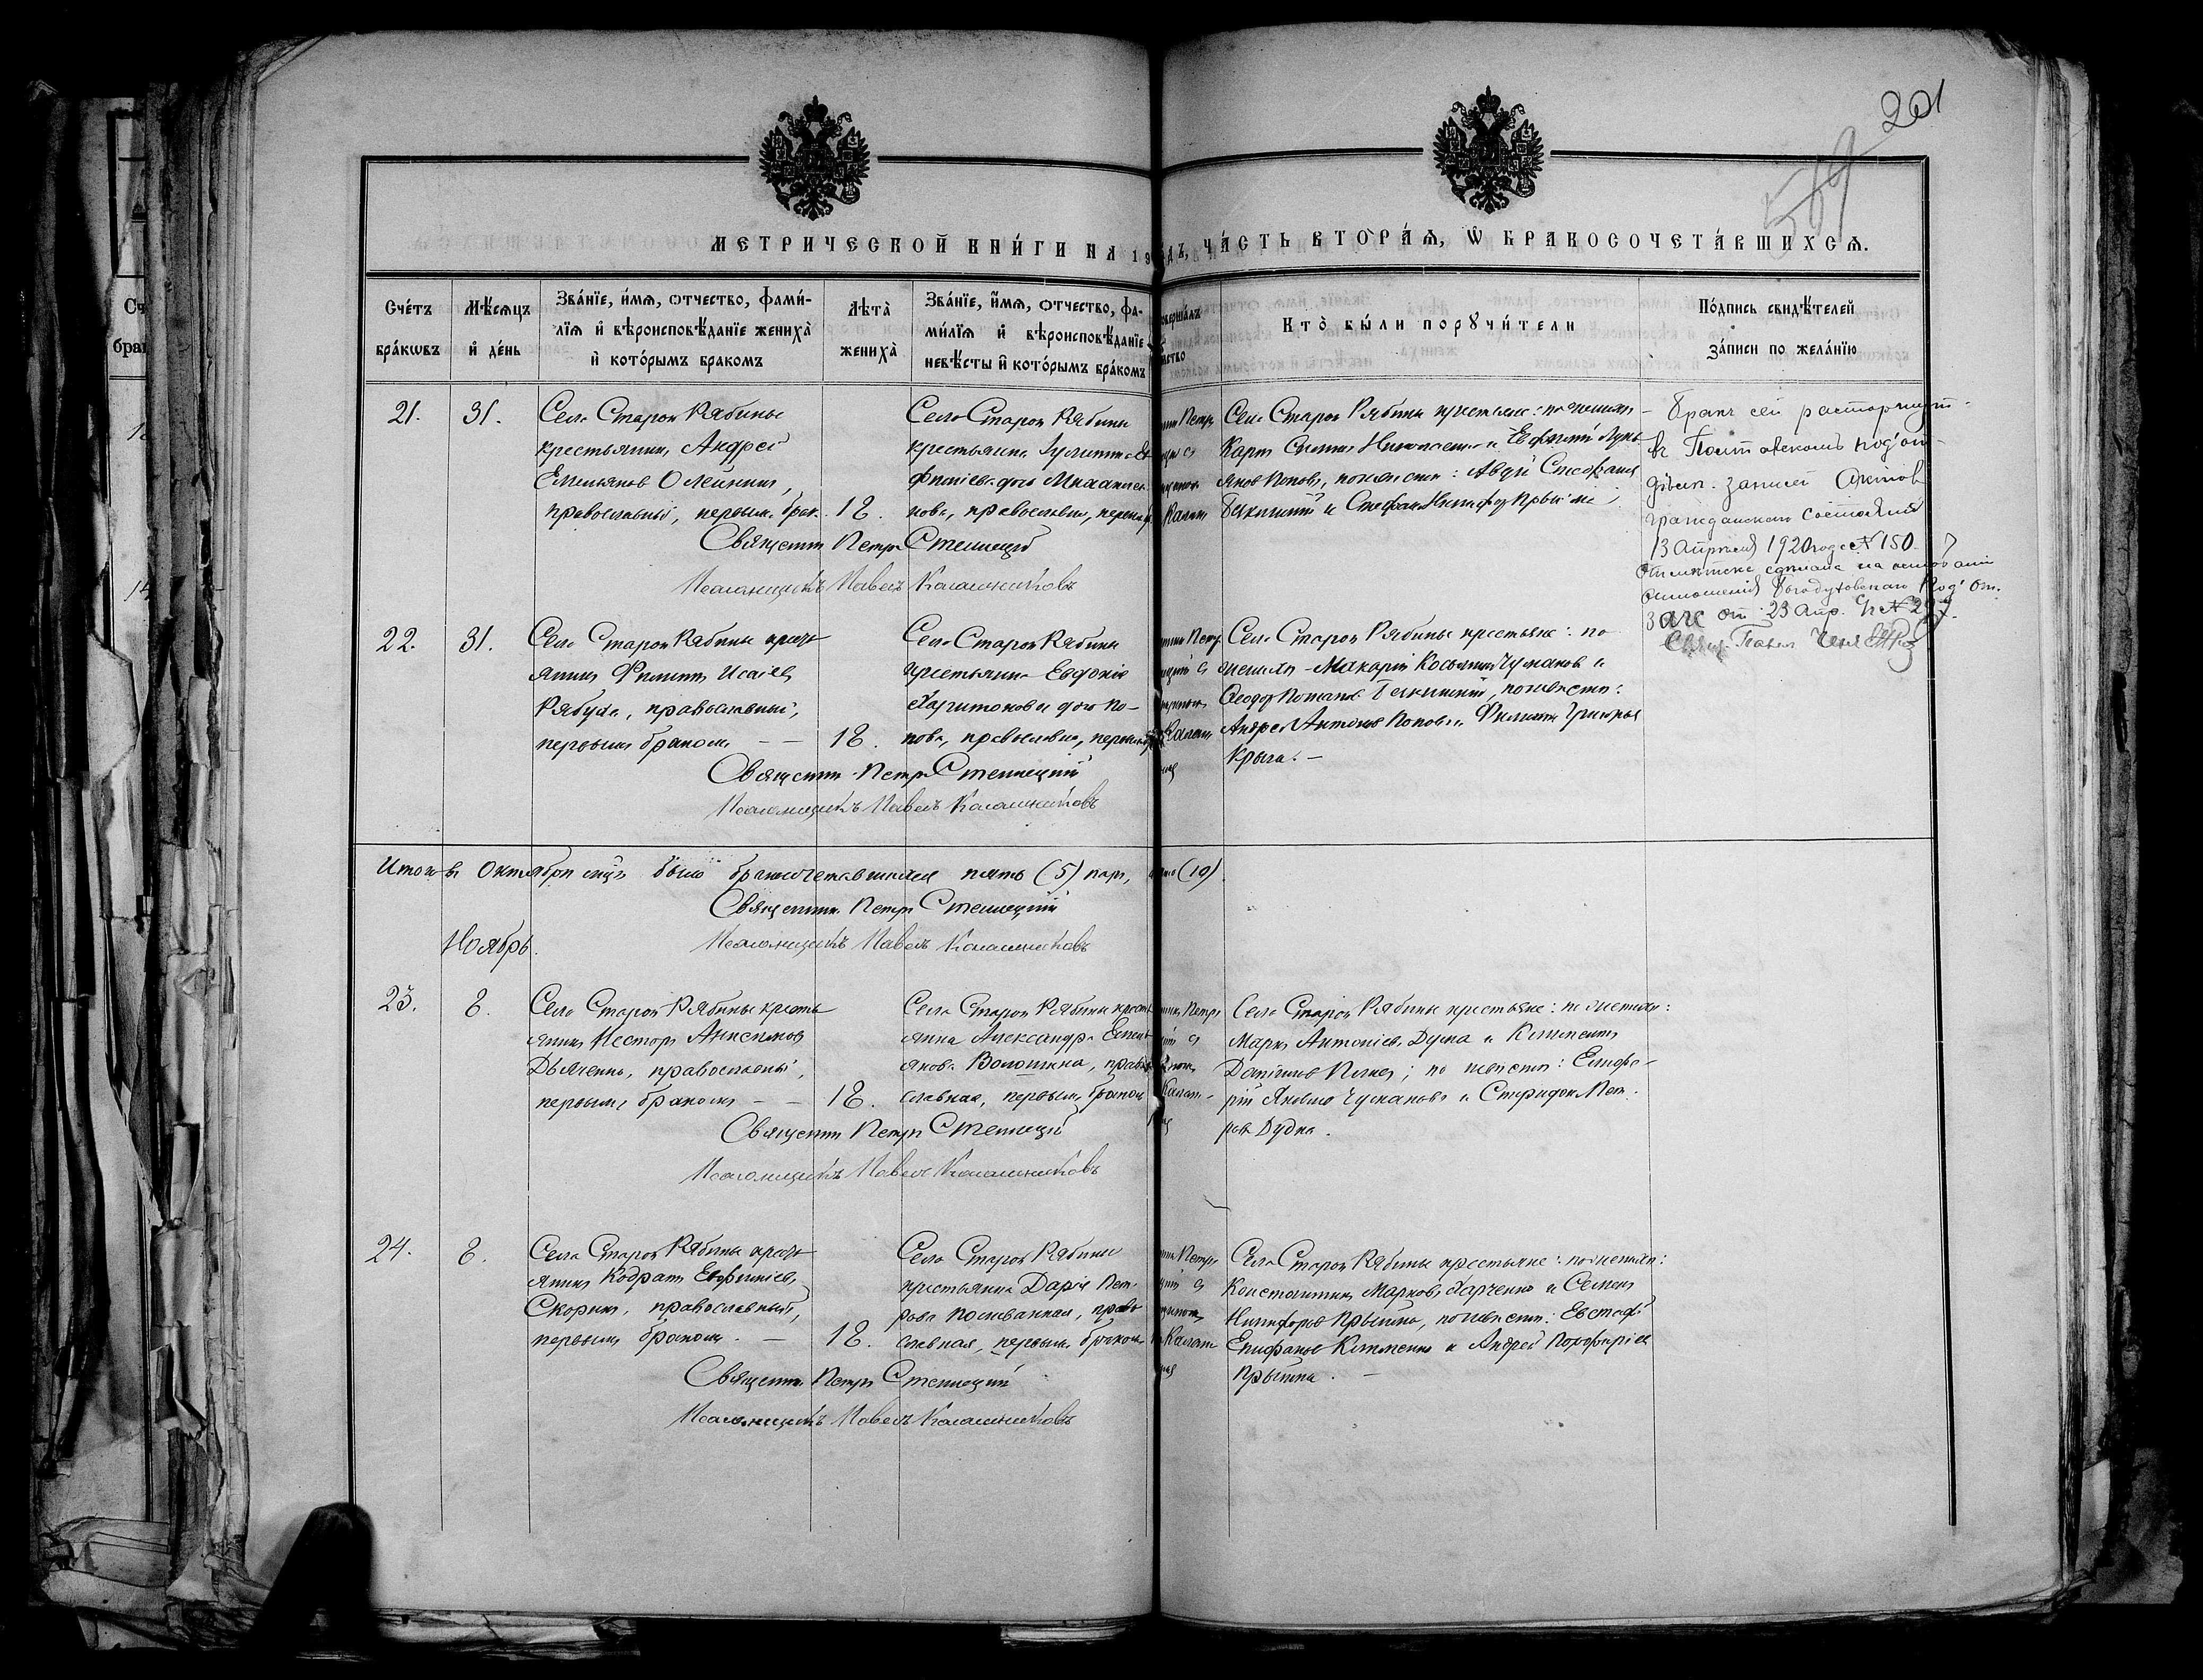 201
569
МЕТРИЧЕСКОЙ КНИ́ГИ НА 19 ДЪ, ЧА́СТЬ ВТОРА́Ѧ, Ѽ БРАКОСОЧЕТА́ВШИХСѦ.
Сче́тъ бра́кѡвъ
Мѣ́сѧцъ и҆ де́нь
Зва́нїе, и҆́мѧ, ѻтчество, фами́-
лїѧ и҆ вѣроисповѣ́данїе жениха̀
и҆ кото́рымъ бракомъ
Лѣта̀ жениха̀
Зва́нїе, и҆́мѧ, ѻтчество, фа-
ми́лїѧ и҆ вѣроисповѣ́данїе
невѣ́сты и҆ кото́рымъ бра́комъ
соверша́лъ
нство
Кто̀ бы́ли порꙋчи́тели
По́дпись свидѣ́телей
за́писи по жела́нїю
21. 31.
Села Старой Рябины
крестьянинъ Андрей
Емельяновъ Олейникъ,
православный, первым. брак. 18.
Села Старой Рябины
крестьянка Іулитта
православн, первым
Петръ
Калаш
Села Старой Рябины крестьяне: по женихѣ
Карпъ
Поповъ, по невѣстѣ: Авдій Стефановъ
и Стефанъ Никифор Прыйма
Бракъ сей расторгнутъ
въ под'от-
дѣлѣ записей Актовъ
гражданского состоянія
13 Апрѣля 1920 года № 150
Отмѣтка сдѣлана на основаніи
отношенія Богодуховскаго Под'от.
ЗАГС от 23 Апр. № 297.
Свящ. Павел
Священникъ Петръ Стеллецкій
Псаломщикъ Павелъ Калашниковъ
22. 31.
Села Старой Рябины крест-
янинъ Филиппъ Исаіевъ
Рябуха, православный,
первымъ бракомъ — — 18.
Села Старой Рябины
крестьянка Евдокія
Харитонова дочь По-
пова, православна, первым
Петр
Калаш
Села Старой Рябины крестьяне: по
женихѣ - Макарій Косьминъ Чумаковъ и
Ѳеодоръ Потаповъ, по невѣстѣ:
Андрей Антоновъ Поповъ и Филиппъ Григорьев
Крыга. —
Священникъ Петръ Стеллецкій
Псаломщикъ Павелъ Калашниковъ
Итого въ Октябрѣ мцѣ было бракосочетавшихся пять (5) паръ, (10).
Священникъ Петръ Стеллецкій
Ноябрь.
Псаломщикъ Павелъ Калашниковъ
23. 8.
Села Старой Рябины кресть-
янинъ Несторъ Анисимовъ
Дьяченко, православный,
первымъ бракомъ — — 18.
Села Старой Рябины крест
янка Александра Емель
янова Волошина, право
славная, первымъ бракомъ
Петръ
Калаш-
Села Старой Рябины крестьяне: по женихѣ:
Маркъ Антоніевъ Дудка и Климентъ
Даніиловъ; по невѣстѣ: Елевфе-
рій Яковлев Чумаковъ и Спиридонъ Пет-
ровъ Дудка.
Священникъ Петръ Стеллецкій
Псаломщикъ Павелъ Калашниковъ
24. 8.
Села Старой Рябины крест-
янинъ Кодратъ Евфиміевъ
Скорикъ, православный,
первымъ бракомъ. — 18.
Села Старой Рябины
крестьянка Дарія Пет-
рова Поливанная, право
славная, первымъ бракомъ
Петръ
Калаш
Села Старой Рябины крестьяне: по женихѣ:
Константинъ Марковъ Харченко и Семенъ
Никифоровъ Прыйма, по невѣстѣ: Евстафій
Епифановъ Клименко и Андрей Порфиріев
Прыйма. —
Священникъ Петръ Стеллецкій
Псаломщикъ Павелъ Калашниковъ